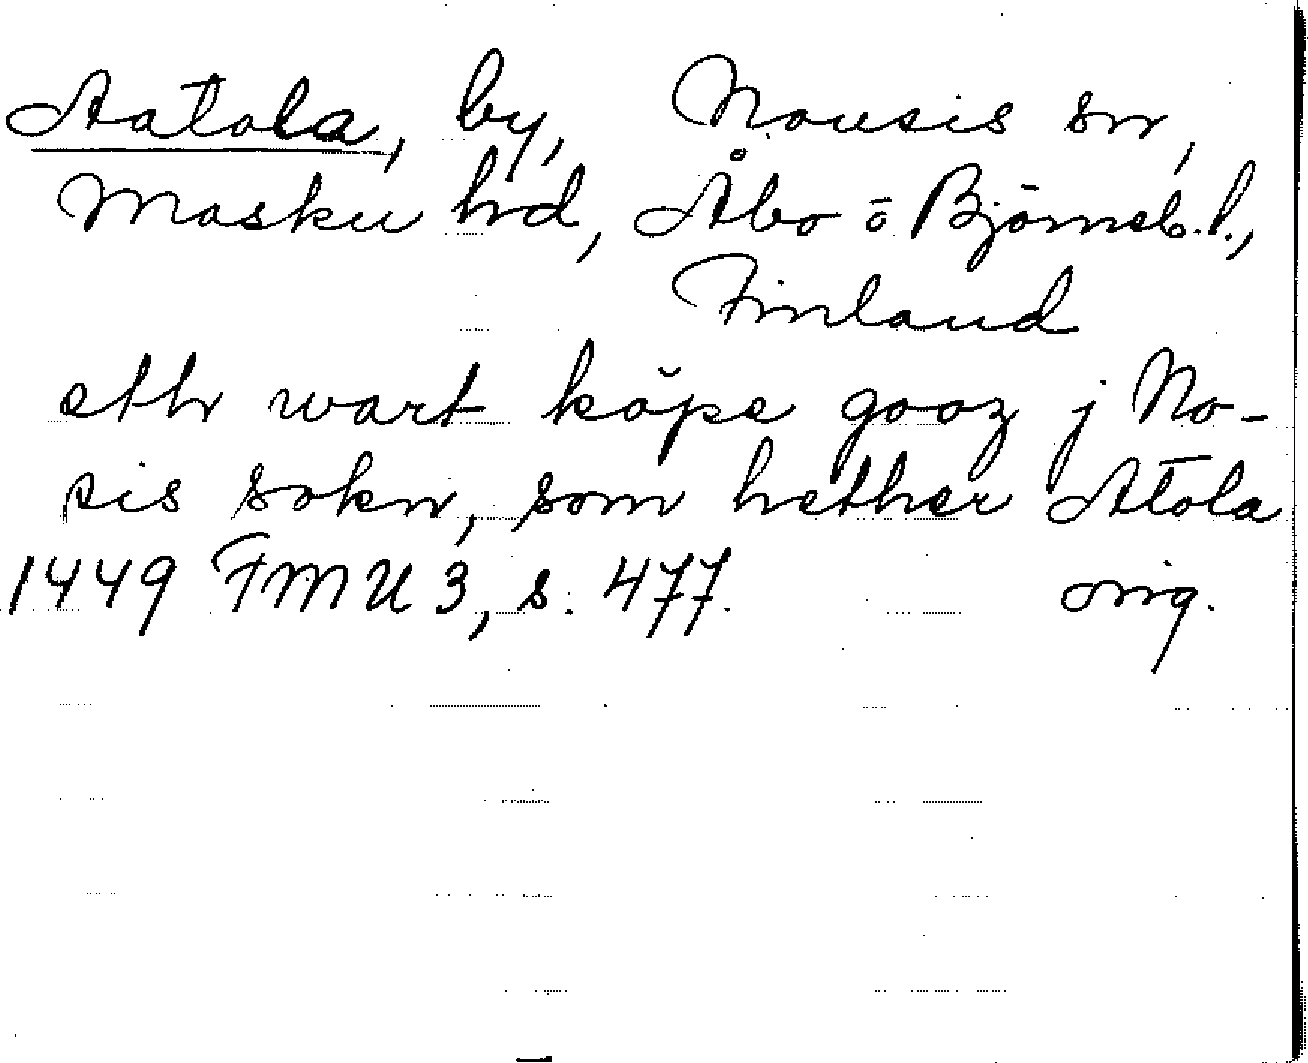 Aatola, by, Nousis sn,
Masku hd, Åbo o Björneb. l.,
Finland
etth wart köpe gooz j No-
sis sokn, som hether Atola
1449 FMU 3, s. 477. orig.